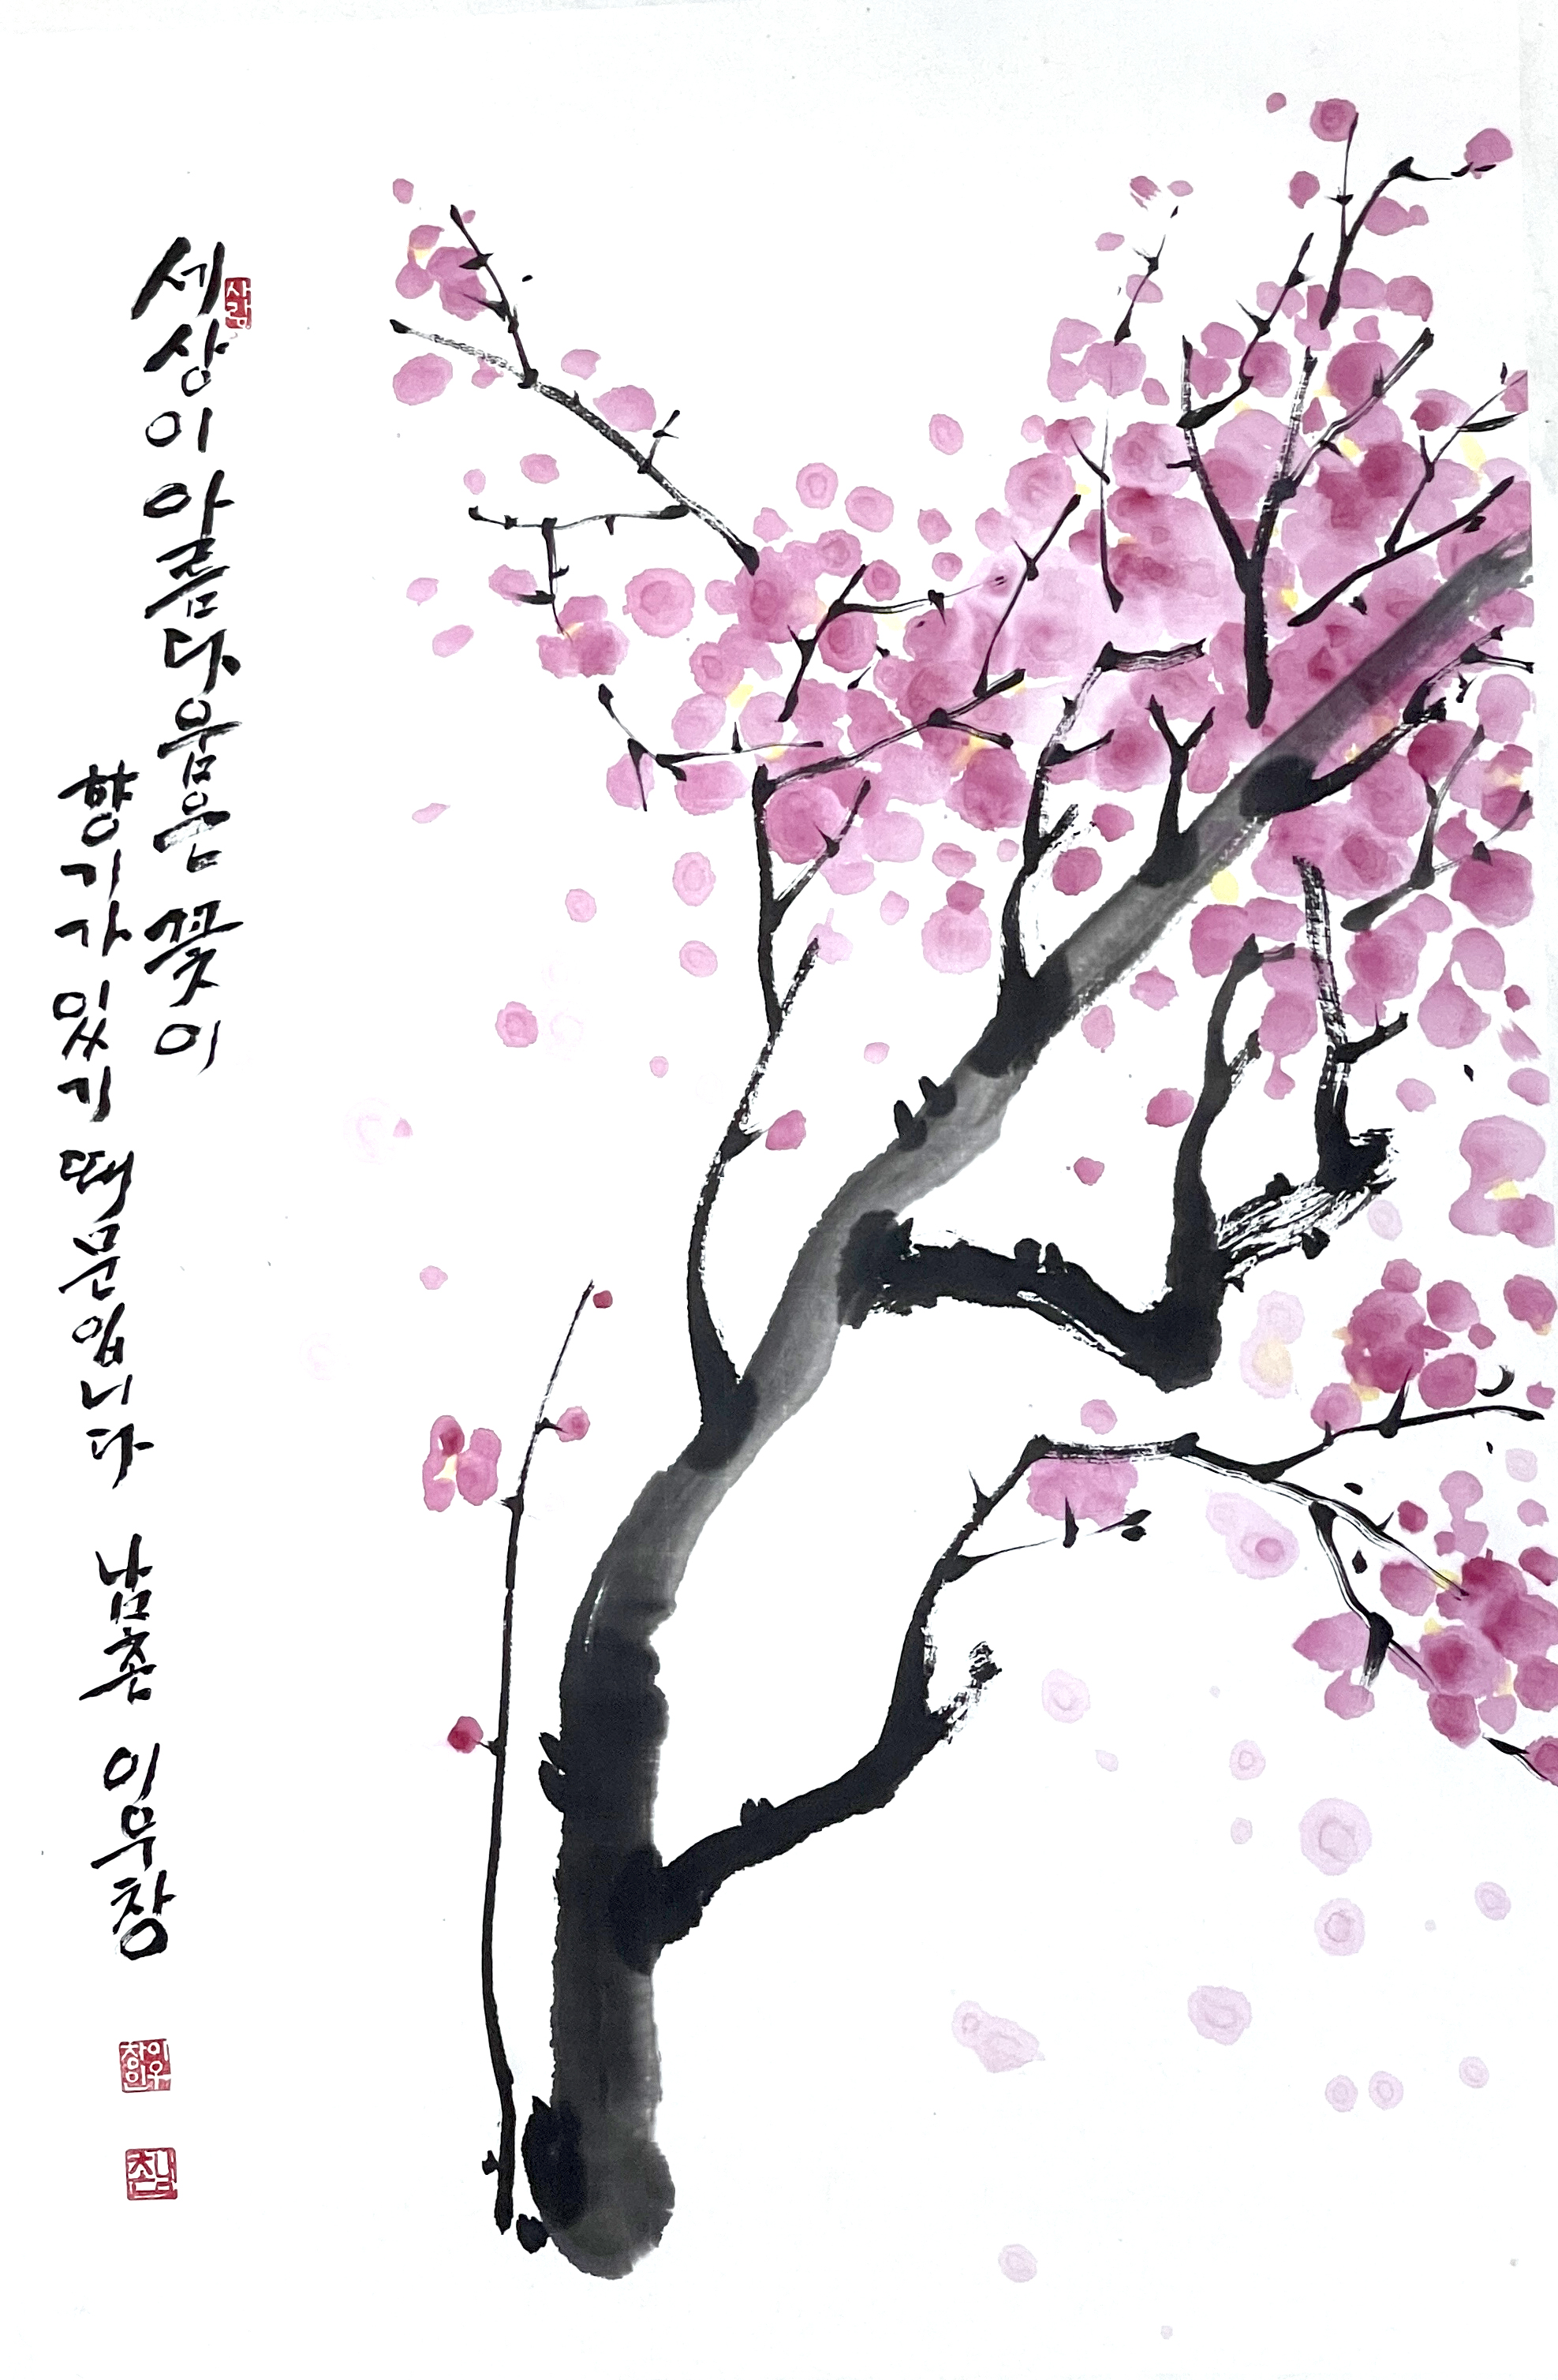 세상이 아름다움은 꽃이
향기가 있기 때문입니다 남촌 이우창
사랑
이우창인
남촌